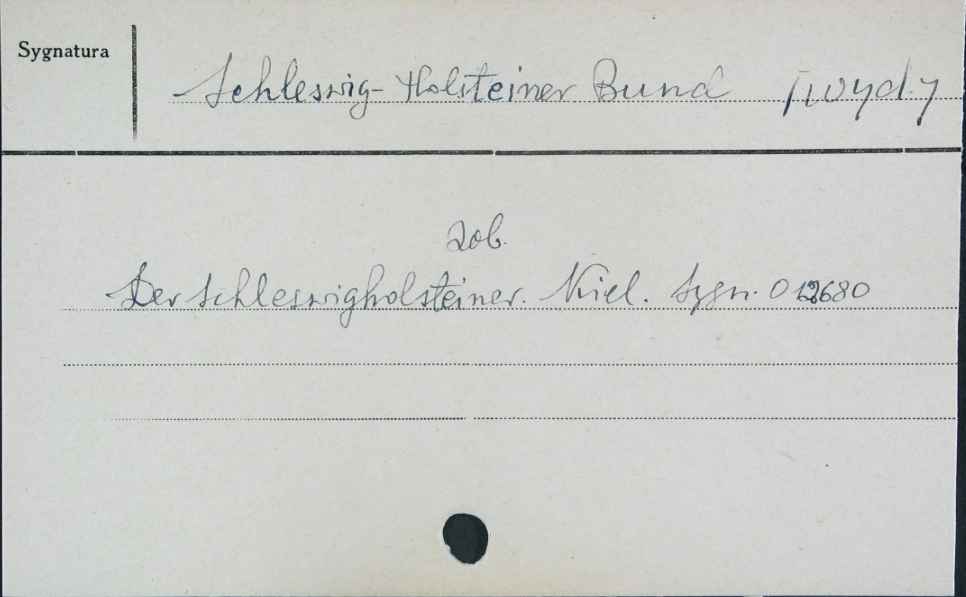 Sygnatura
Schleswig-Holsteiner Bund [wyd.]
zob.
Der Schleswigholsteiner. Kiel. Sygn. 012680